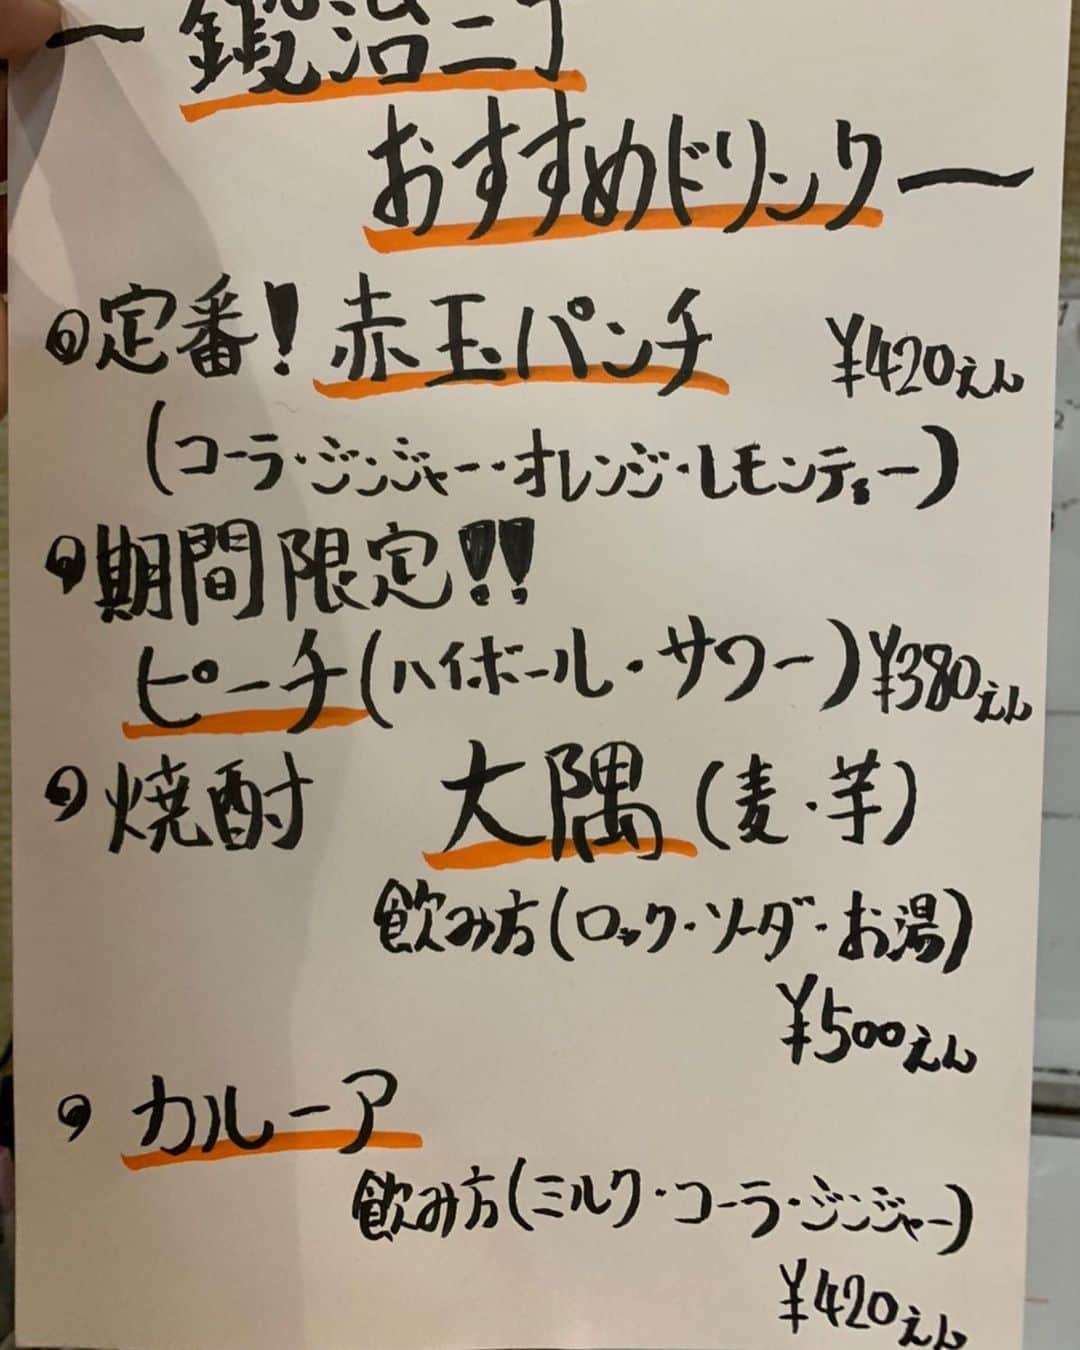 〜鍛冶二丁
おすすめドリンク〜
◎定番!赤玉パンチ ¥420えん
(コーラ・ジンジャー・オレンジ・レモンティー)
期間限定!!
ピーチ(ハイボール・サワー)¥380えん
焼酎 大隅(麦・芋)
飲み方(ロック・ソーダ・お湯)
¥500えん
カルーア
飲み方(ミルク・コーラ・ジンジャー)
¥420えん